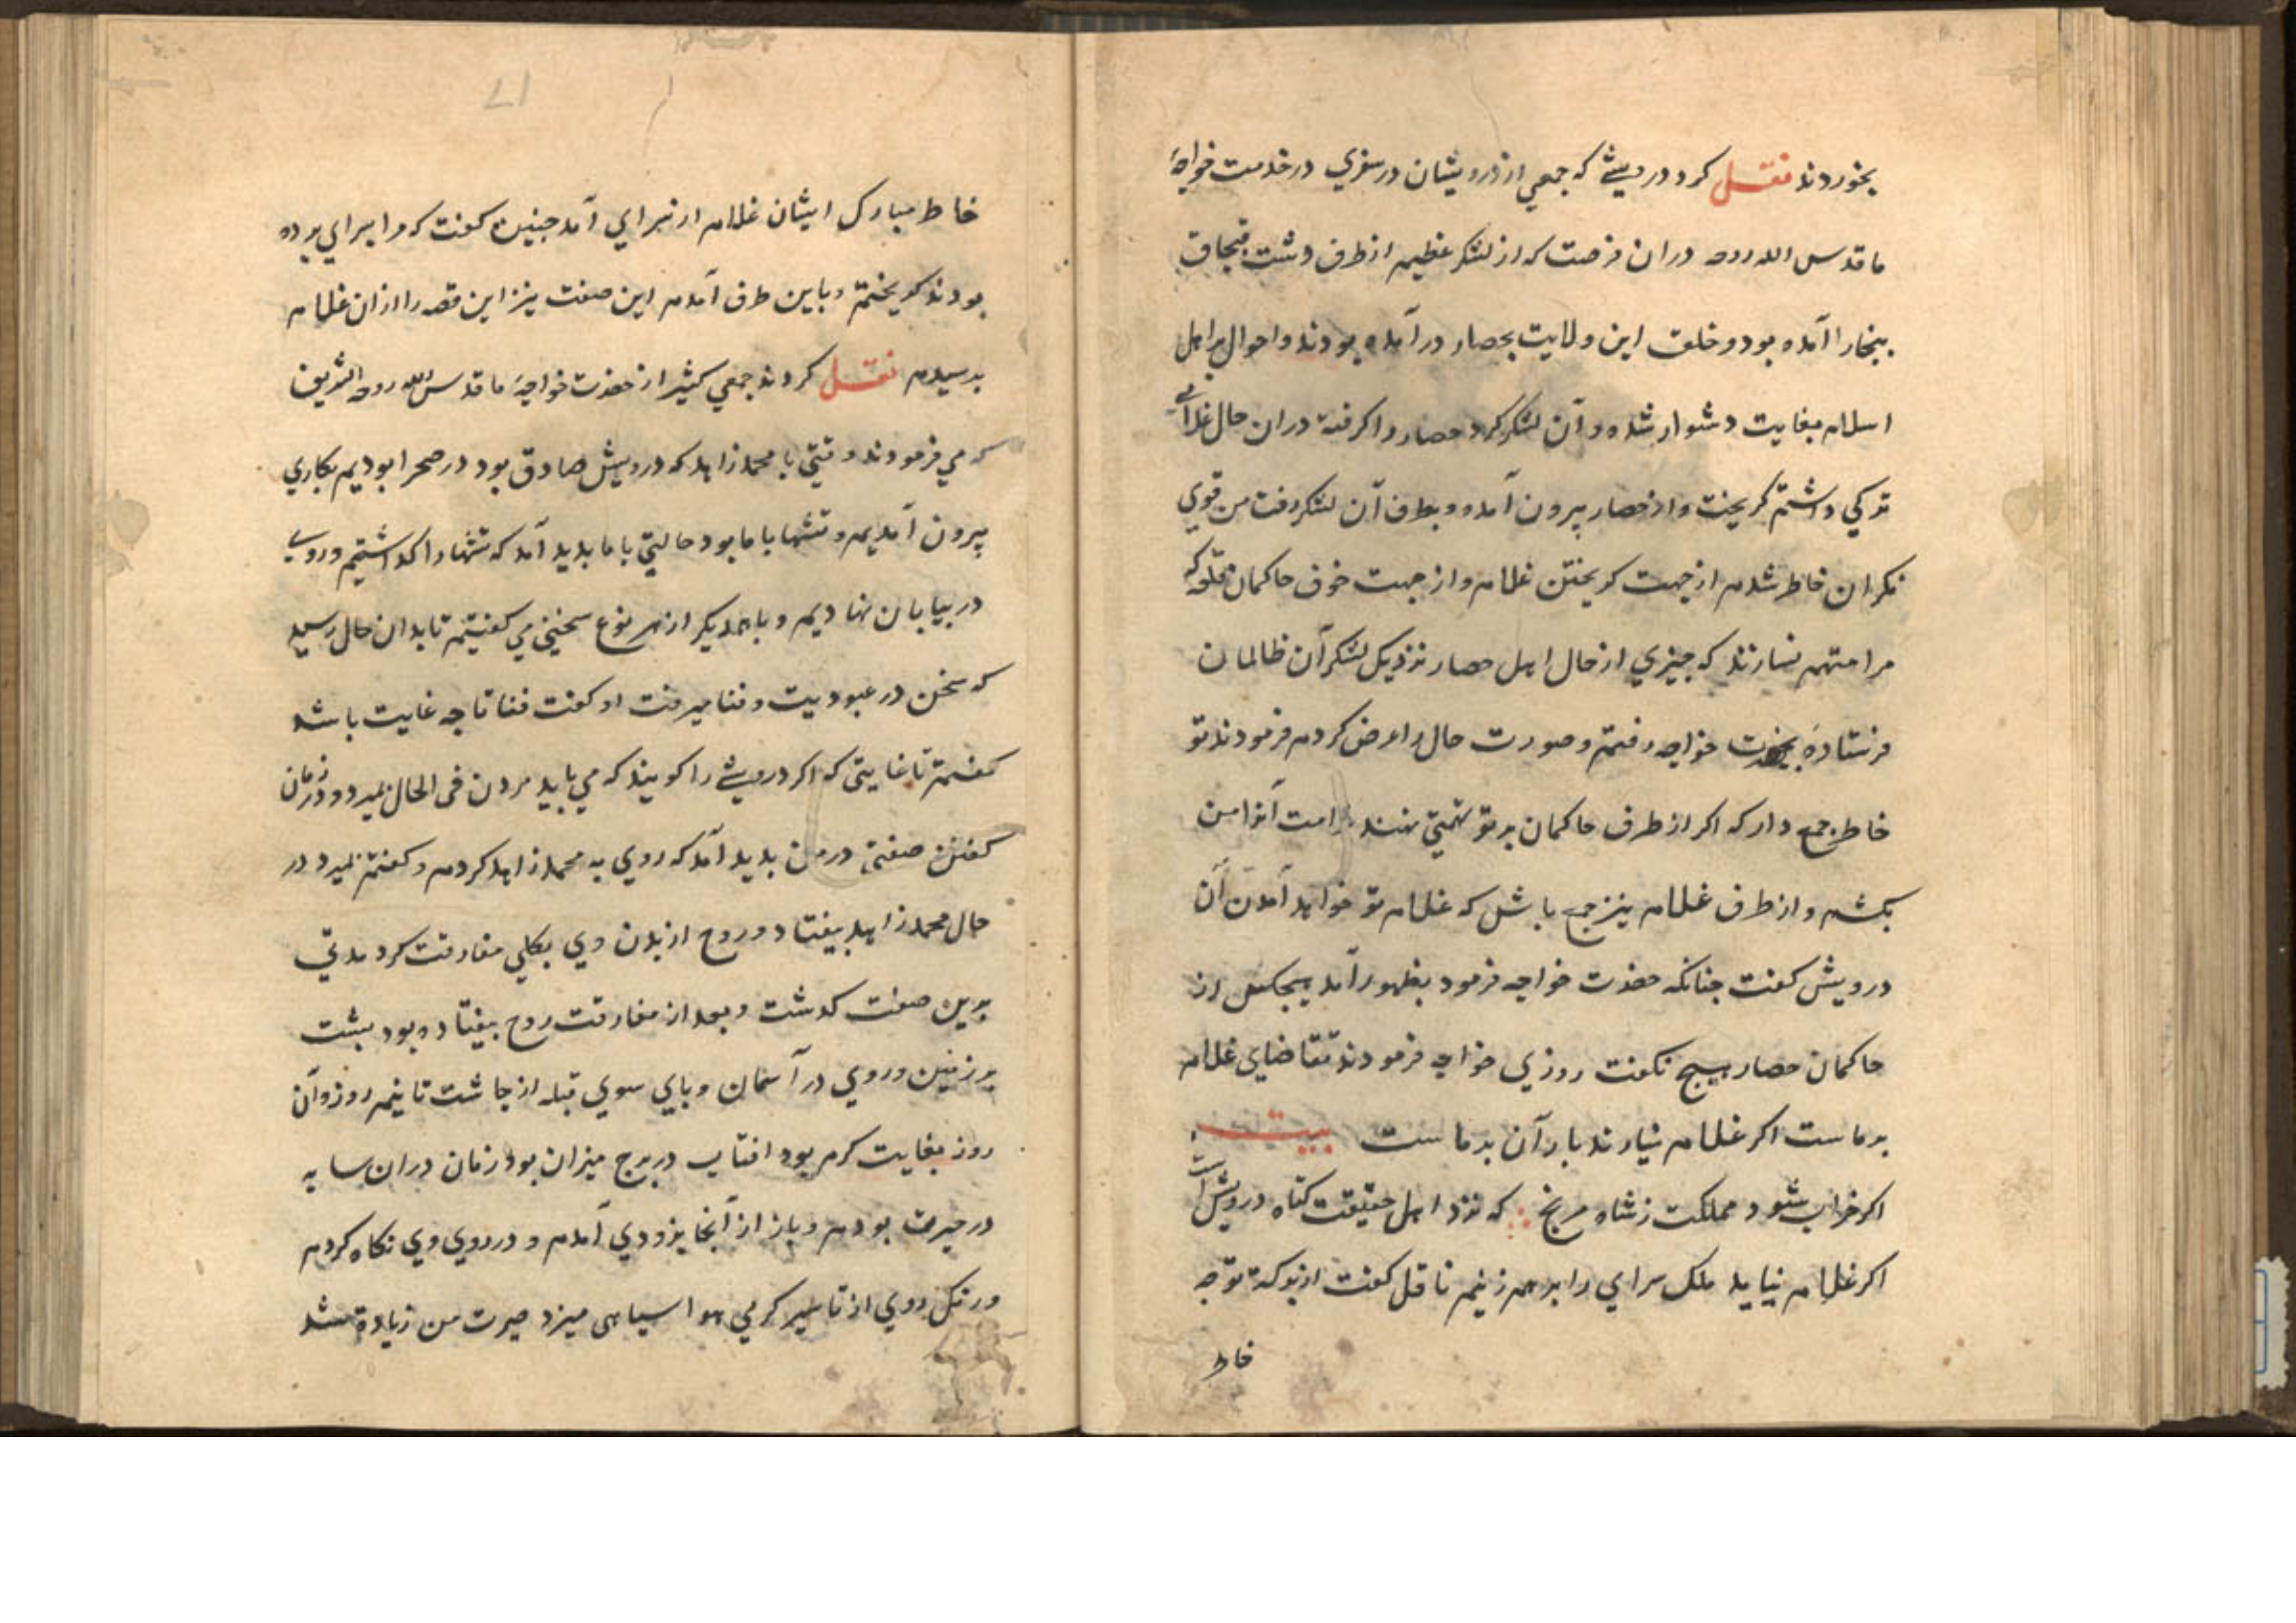 بخوردند نقل کرد درویشے که جمعي از درویشان در سفري در خدمت خواجهٔ
ما قدس الله روحه دران فرصت که از لشکر عظیم از طرف دشت قبجاق
ببخارا آمده بود و خلق این ولایت بحصار در آمده بودند و احوال بر اهل
اسلام بغایت دشوار شده و آن لشکر کرد حصار را کرفته دران حال غلامے
ترکي داشتم کریخت و از حصار بیرون آمده و بطرف آن لشکر رفت من قوي
نکران خاطر شدم از جهت کریختن غلام و از جهت خوف حاکمان قلعه که
مرا متهم نسازند که جیزي از حال اهل حصار نزدیک لشکر آن ظالمان
فرستادهٔ بحضرت خواجه رفتم و صورت حال را عرض کردم فرمودند تو
خاطر جمع دار که اکر از طرف حاکمان بر تو تهمتي نهند غرامت آنرا من
بکشم و از طرف غلام نیز جمع باش که غلام تو خواهد آمدن آن
درویش کفت جنانکه حضرت خواجه فرمود بظهور آمد هیجکس از
حاکمان حصار هیج نکفت روزي خواجه فرمودند تقاضاي غلام
بر ماست اکر غلام نیارند بار آن بر ما ست بیت
اکر خراب شود مملکت ز شاه مرنج که نزد اهل حقیقت کناه درویش است
اکر غلام نیاید ملک سراي را برهم زنیم ناقل کفت از برکهٔ توجه
خاطر
خاطر مبارک ایشان غلام از سراي آمد جنین کفت که مرا بسراي برده
بودند کریختم و باین طرف آمدم این صفت نیز این قصه را ازان غلام
برسیدم نقل کردند جمعي کثیر از حضرت خواجهٔ ما قدس الله روحه الشریف
که مي فرمودند وقتي با محمد زاهد که درویش صادق بود در صحرا بودیم بکاري
بیرون آمدیم و تشها با ما بود حالتي با ما بدید آمد که تشها را کذاشتیم و روي
در بیابان نهادیم و با همدیکر از هر نوع سخني مي کفتیم تا بدان حال رسید
که سخن در عبودیت و فنا میرفت او کفت فنا تا جه غایت باشد
کفتم تا غایتي که اکر درویشے را کویند که مي باید مردن في الحال بمیرد و در زمان
کفتن صفتي در من بدید آمد که روي به محمد زاهد کردم و کفتم بمیرد در
حال محمد زاهد بیفتاد و روح از بدن وي بکلي مفارقت کرد مدتي
برین صفت کذشت و بعد از مفارقت روح بیفتاده بود بشت
بر زمین و روي در آسمان و باي سوي قبله از جاشت تا نیم روز و آن
روز بغایت کرم بود افتاب در برج میزان بود زمان دران سایه
در حیرت بودم و باز از آنجا بزودي آمدم و در روي وي نکاه کردم
و رنک روي از تاسیر کرمي هوا سیاهي میزد حیرت من زیادة شد